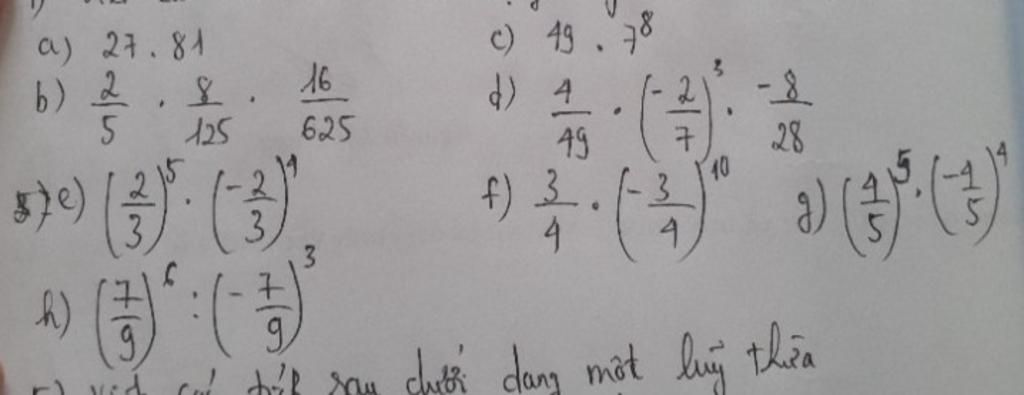 a) 27 . 81
c) 49 . 7⁸
b) 2/5 . 8/125 . 16/625
d) 4/49 . (-2/7)³ . -8/28
e) (2/3)⁵ . (-2/3)⁴
f) 3/4 . (-3/4)¹⁰
g) (4/5)⁵ . (-4/5)⁴
h) (7/9)⁶ : (-7/9)³
sau dưới dạng một luỹ thừa